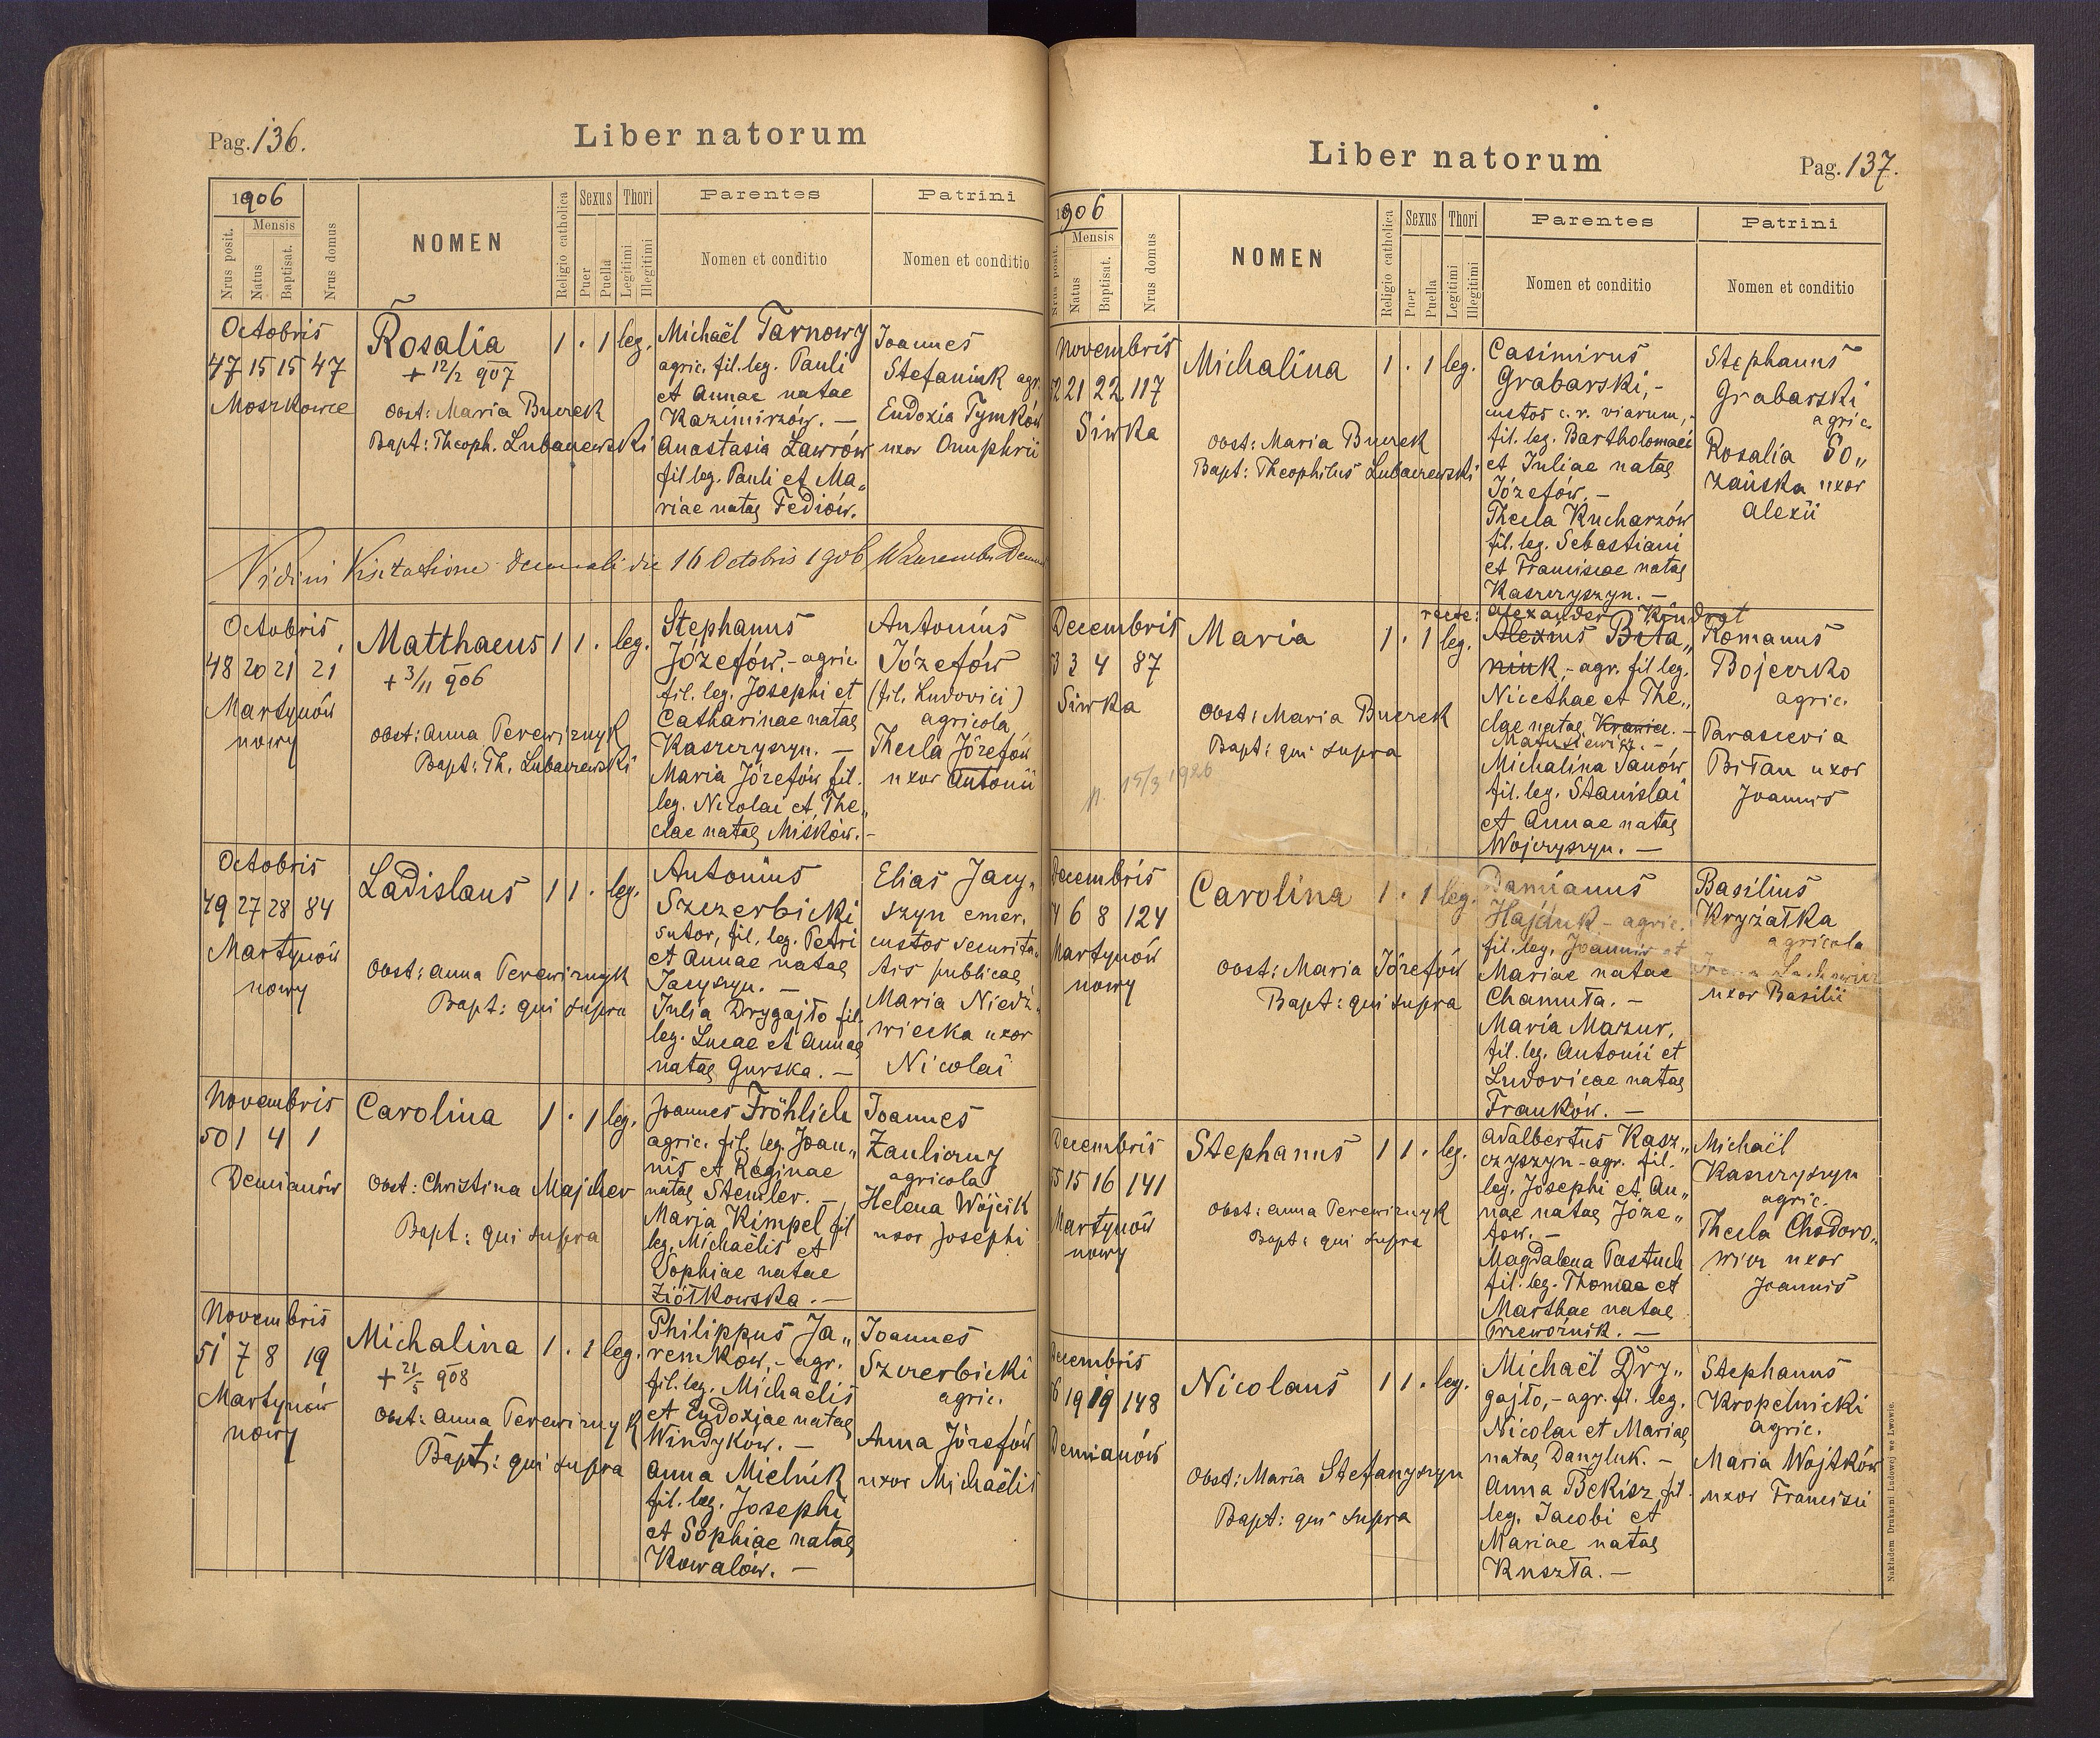 Pag. 136.
Liber natorum
1906
Mensis
Nrus posit.
Natus
Baptisat.
Nrus domus
NOMEN
Religio catholica
Sexus
Puer
Puella
Thori
Legitimi
Illegitimi
Parentes
Nomen et conditio
Patrini
Nomen et conditio
Octobris
47 15 15 47
Moszkowce
Rosalia
+ 12/2 907
Obst: Maria Burek
Bapt: Theoph. Lubaczewski
1 . 1 leg.
Michaël Tarnowy
agric. fil. leg. Pauli
et Annae natae
Kazimirzów. —
Anastasia Ławrów
fil leg. Pauli et Ma„
riae natae Fediów.
Joannes
Stefaniuk agr.
Eudoxia Tymków
uxor Onuphrii
Vidini Visitatione decanali die 16 Octobris 1906
Octobris
48 20 21 21
Martynów
nowy
Matthaeus
+ 3/11 906
Obst: Anna Perewiznyk
Bapt: Th. Lubaczewski
1 1 . leg.
Stephanus
Józefów, - agric.
fil. leg. Josephi et
Catharinae natae
Kaszczyszyn. —
Maria Józefów fil.
leg. Nicolai et The„
clae natae Miśków. -
Antonius
Józefów
(fil. Ludovici)
agricola
Thecla Józefów
uxor Antonii
Octobris
49 27 28 84
Martynów
nowy
Ladislaus
Obst: Anna Perewiznyk
Bapt: qui supra
1 1 . leg.
Antonius
Szczerbicki
sutor, fil. leg. Petri
et Annae natae
Jacyszyn. —
Julia Drygajło fil.
leg. Lucae et Annae
natae Gurska. —
Elias Jacy„
szyn emer.
custos securita„
tis publicae
Maria Niedź„
wiecka uxor
Nicolai
Novembris
50 1 4 1
Demianów
Carolina
Obst: Christina Majcher
Bapt: qui supra
1 . 1 leg.
Joannes Fröhlich
agric. fil. leg. Joan„
nis et Reginae
natae Stemler. —
Maria Kimpel fil
leg. Michaëlis et
Sophiae natae
Ziółkowska. —
Joannes
Zauliczny
agricola
Helena Wójcik
uxor Josephi
Novembris
51 7 8 19
Martynów
nowy
Michalina
+ 21/5 908
Obst: Anna Perewiznyk
Bapt: qui supra
1 . 1 leg.
Philippus Ja„
remkow, - agr.
fil. leg. Michaëlis
et Eudoxiae natae
Windyków. —
Anna Mielnik
fil. leg. Josephi
et Sophiae natae
Kowalów. —
Joannes
Szczerbicki
agric.
Anna Józefów
uxor Michaëlis
Liber natorum
Pag. 137.
1906
Mensis
Nrus posit.
Natus
Baptisat.
Nrus domus
NOMEN
Religio catholica
Sexus
Puer
Puella
Thori
Legitimi
Illegitimi
Parentes
Nomen et conditio
Patrini
Nomen et conditio
Novembris
52 21 22 117
Siwka
Michalina
Obst: Maria Burek
Bapt: Theophilus Lubaczewski
1 . 1 leg.
Casimirus
Grabarski, -
custos c. r. viarum, -
fil. leg. Bartholomaei
et Juliae natae
Józefów. —
Thecla Kucharzów
fil. leg. Sebastiani
et Franciscae natae
Kaszczyszyn. —
Stephanus
Grabarski
agric.
Rosalia So„
zańska uxor
Alexii
Decembris
53 3 4 87
Siwka
Maria
Obst: Maria Burek
Bapt: qui supra
15/3 1926
1 . 1 leg.
recte: Alexander Kindrat
Alexius Bita„
niuk, - agr. fil leg.
Nicethae et The„
clae natae
Matusiewicz. —
Michalina Janów
fil. leg. Stanislai
et Annae natae
Wojczyszyn. —
Romanus
Bojeczko
agric.
Parascevia
Bitan uxor
Joannis
Decembris
54 6 8 124
Martynów
nowy
Carolina
Obst: Maria Józefów
Bapt: qui supra
1 . 1 leg.
Damianus
Hajduk - agric.
fil. leg. Joannis et
Mariae natae
Chamuta. —
Maria Mazur,
fil. leg. Antonii et
Ludovicae natae
Franków. —
Basilius
Kryżatka
agricola
uxor Basilii
Decembris
55 15 16 141
Martynów
nowy
Stephanus
Obst: Anna Perewiznyk
Bapt: qui supra
1 1 . leg.
Adalbertus Kasz„
czyszyn - agr. fil.
leg. Josephi et An„
nae natae Józe„
fow. —
Magdalena Pastuch
fil. leg. Thomae et
Marthae natae
Przewoźnik. —
Michaël
Kaszczyszyn
agric.
Thecla Chodoro„
wicz uxor
Joannis
Decembris
56 19 19 148
Demianów
Nicolaus
Obst: Maria Stefanyszyn
Bapt: qui supra
1 1 . leg.
Michaël Dry„
gajło, - agr. fil. leg.
Nicolai et Mariae
natae Danyluk. —
Anna Bekisz fil.
leg. Jacobi et
Mariae natae
Kuszta. —
Stephanus
Kropelnicki
agric.
Maria Wojtków
uxor Francisci
Nakładem Drukarni Ludowej we Lwowie.